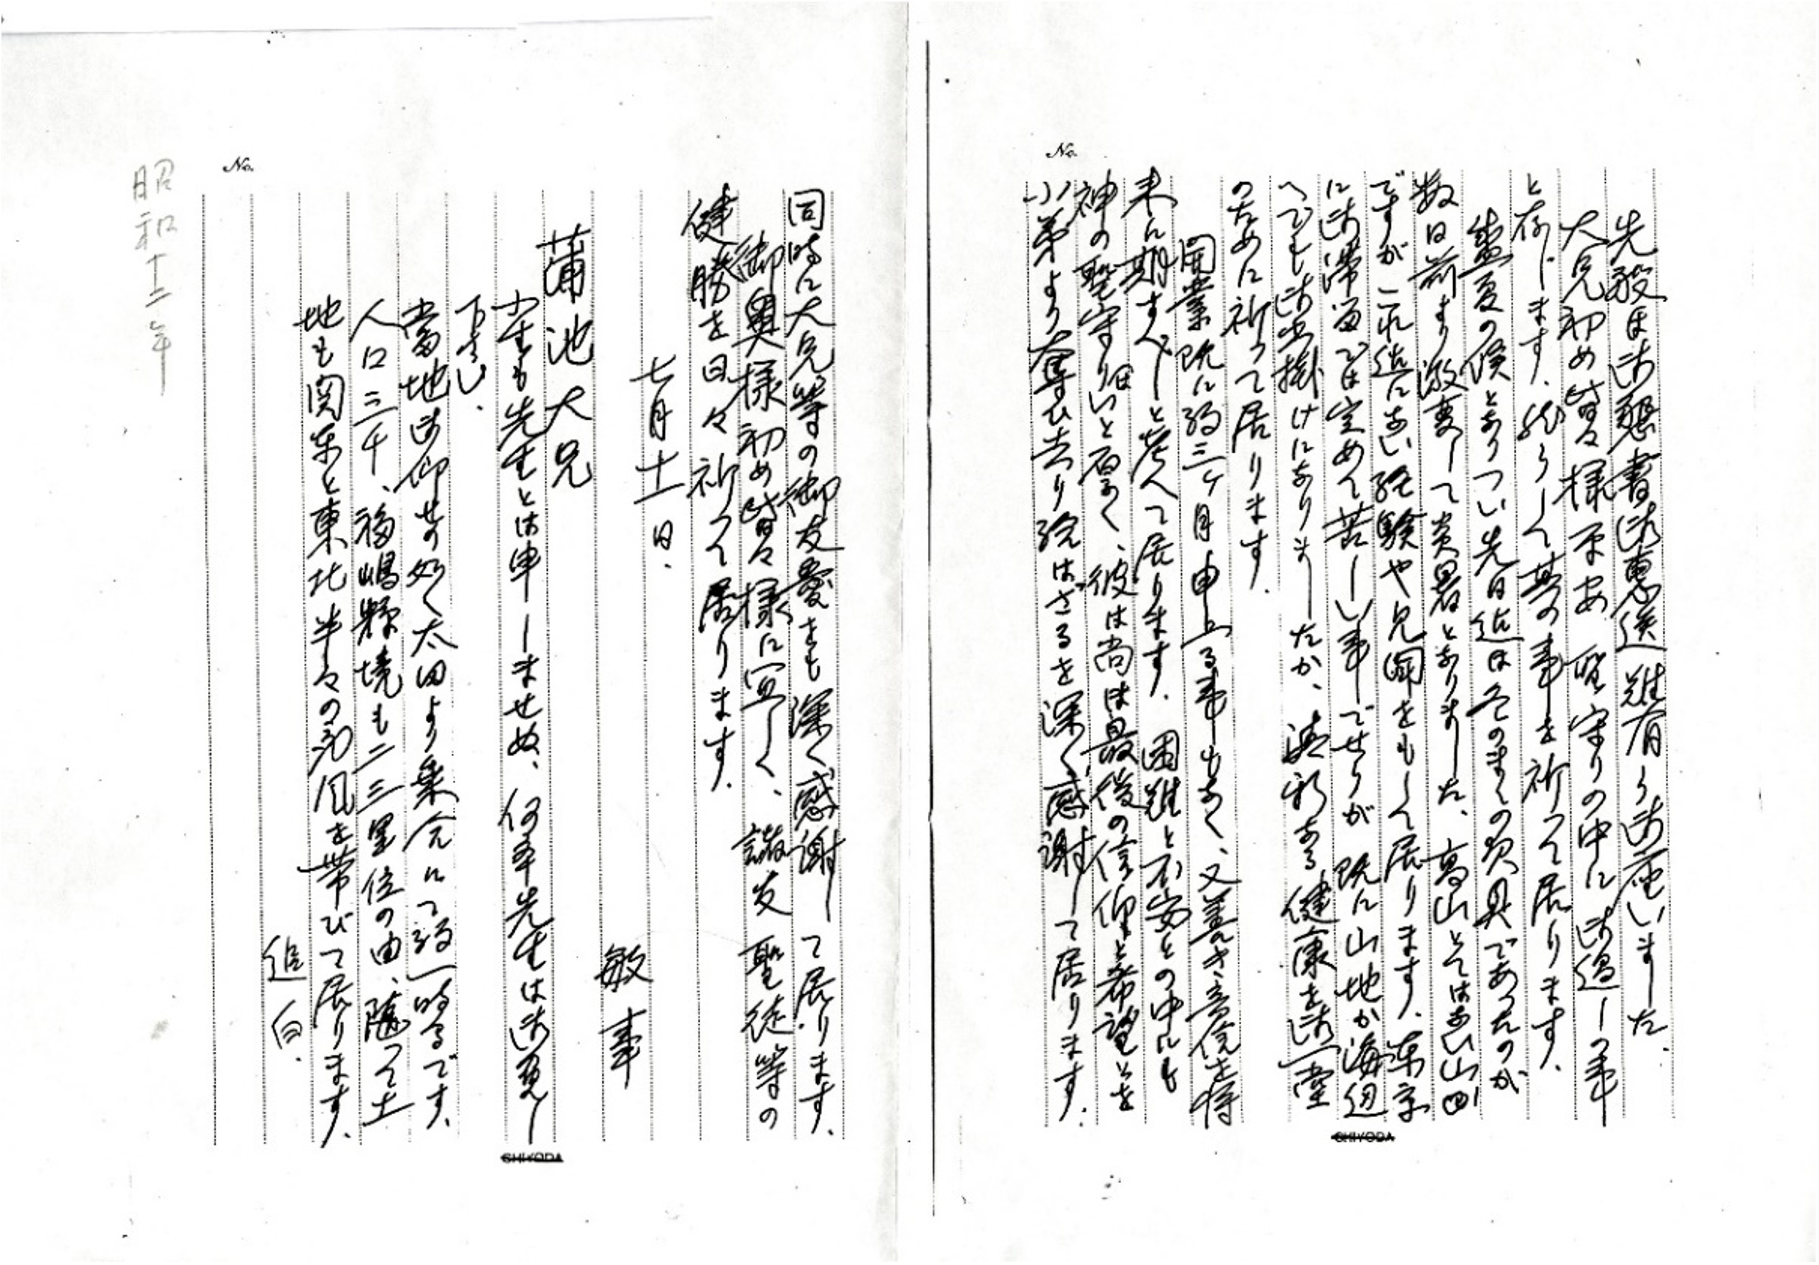 No.
先般は御懇書御恵送難有う御座いました.
大兄初め皆々様平安 聖守りの中に御過し事
と存じます. 然うして其の事を祈って居ります.
盛夏の候となりつい先日迄は冬のまゝの夜具であったのが
数日前より激変して炎暑となりました. 高山とてはない山国
ですがこれ迄にない経験や見聞をもして居ります. 東京
に御滞留では定めて苦しい事でせうが 既に山地か海辺
へでも御出掛けになりましたか、溌剌たる健康を御一堂
のために祈って居ります.
開業既に約三ヶ月申上る事もなく、又善き音信を将
来に期すべしと考へて居ります. 困難と不安との中にも
神の聖守りいと厚く、彼は尚ほ最後の信仰と希望とを
小弟より奪ひ去り給はざるを深く感謝して居ります.
SHIYODA
No.
同時に大兄等の御友愛をも深く感謝して居ります.
御奥様初め皆々様に宜しく、諸友 聖徒等の
健勝を日々祈って居ります.
七月十一日.
敏事
蒲池大兄
小生も先生とは申しませぬ、何卒先生は御免し
下さい.
當地御仰せの如く太田より乗合にて約一時間です.
人口二三千、福嶋縣境も二三里位の由、随って土
地も関東と東北半々の気風を帯びて居ります.
追白.
昭和十二年
SHIYODA